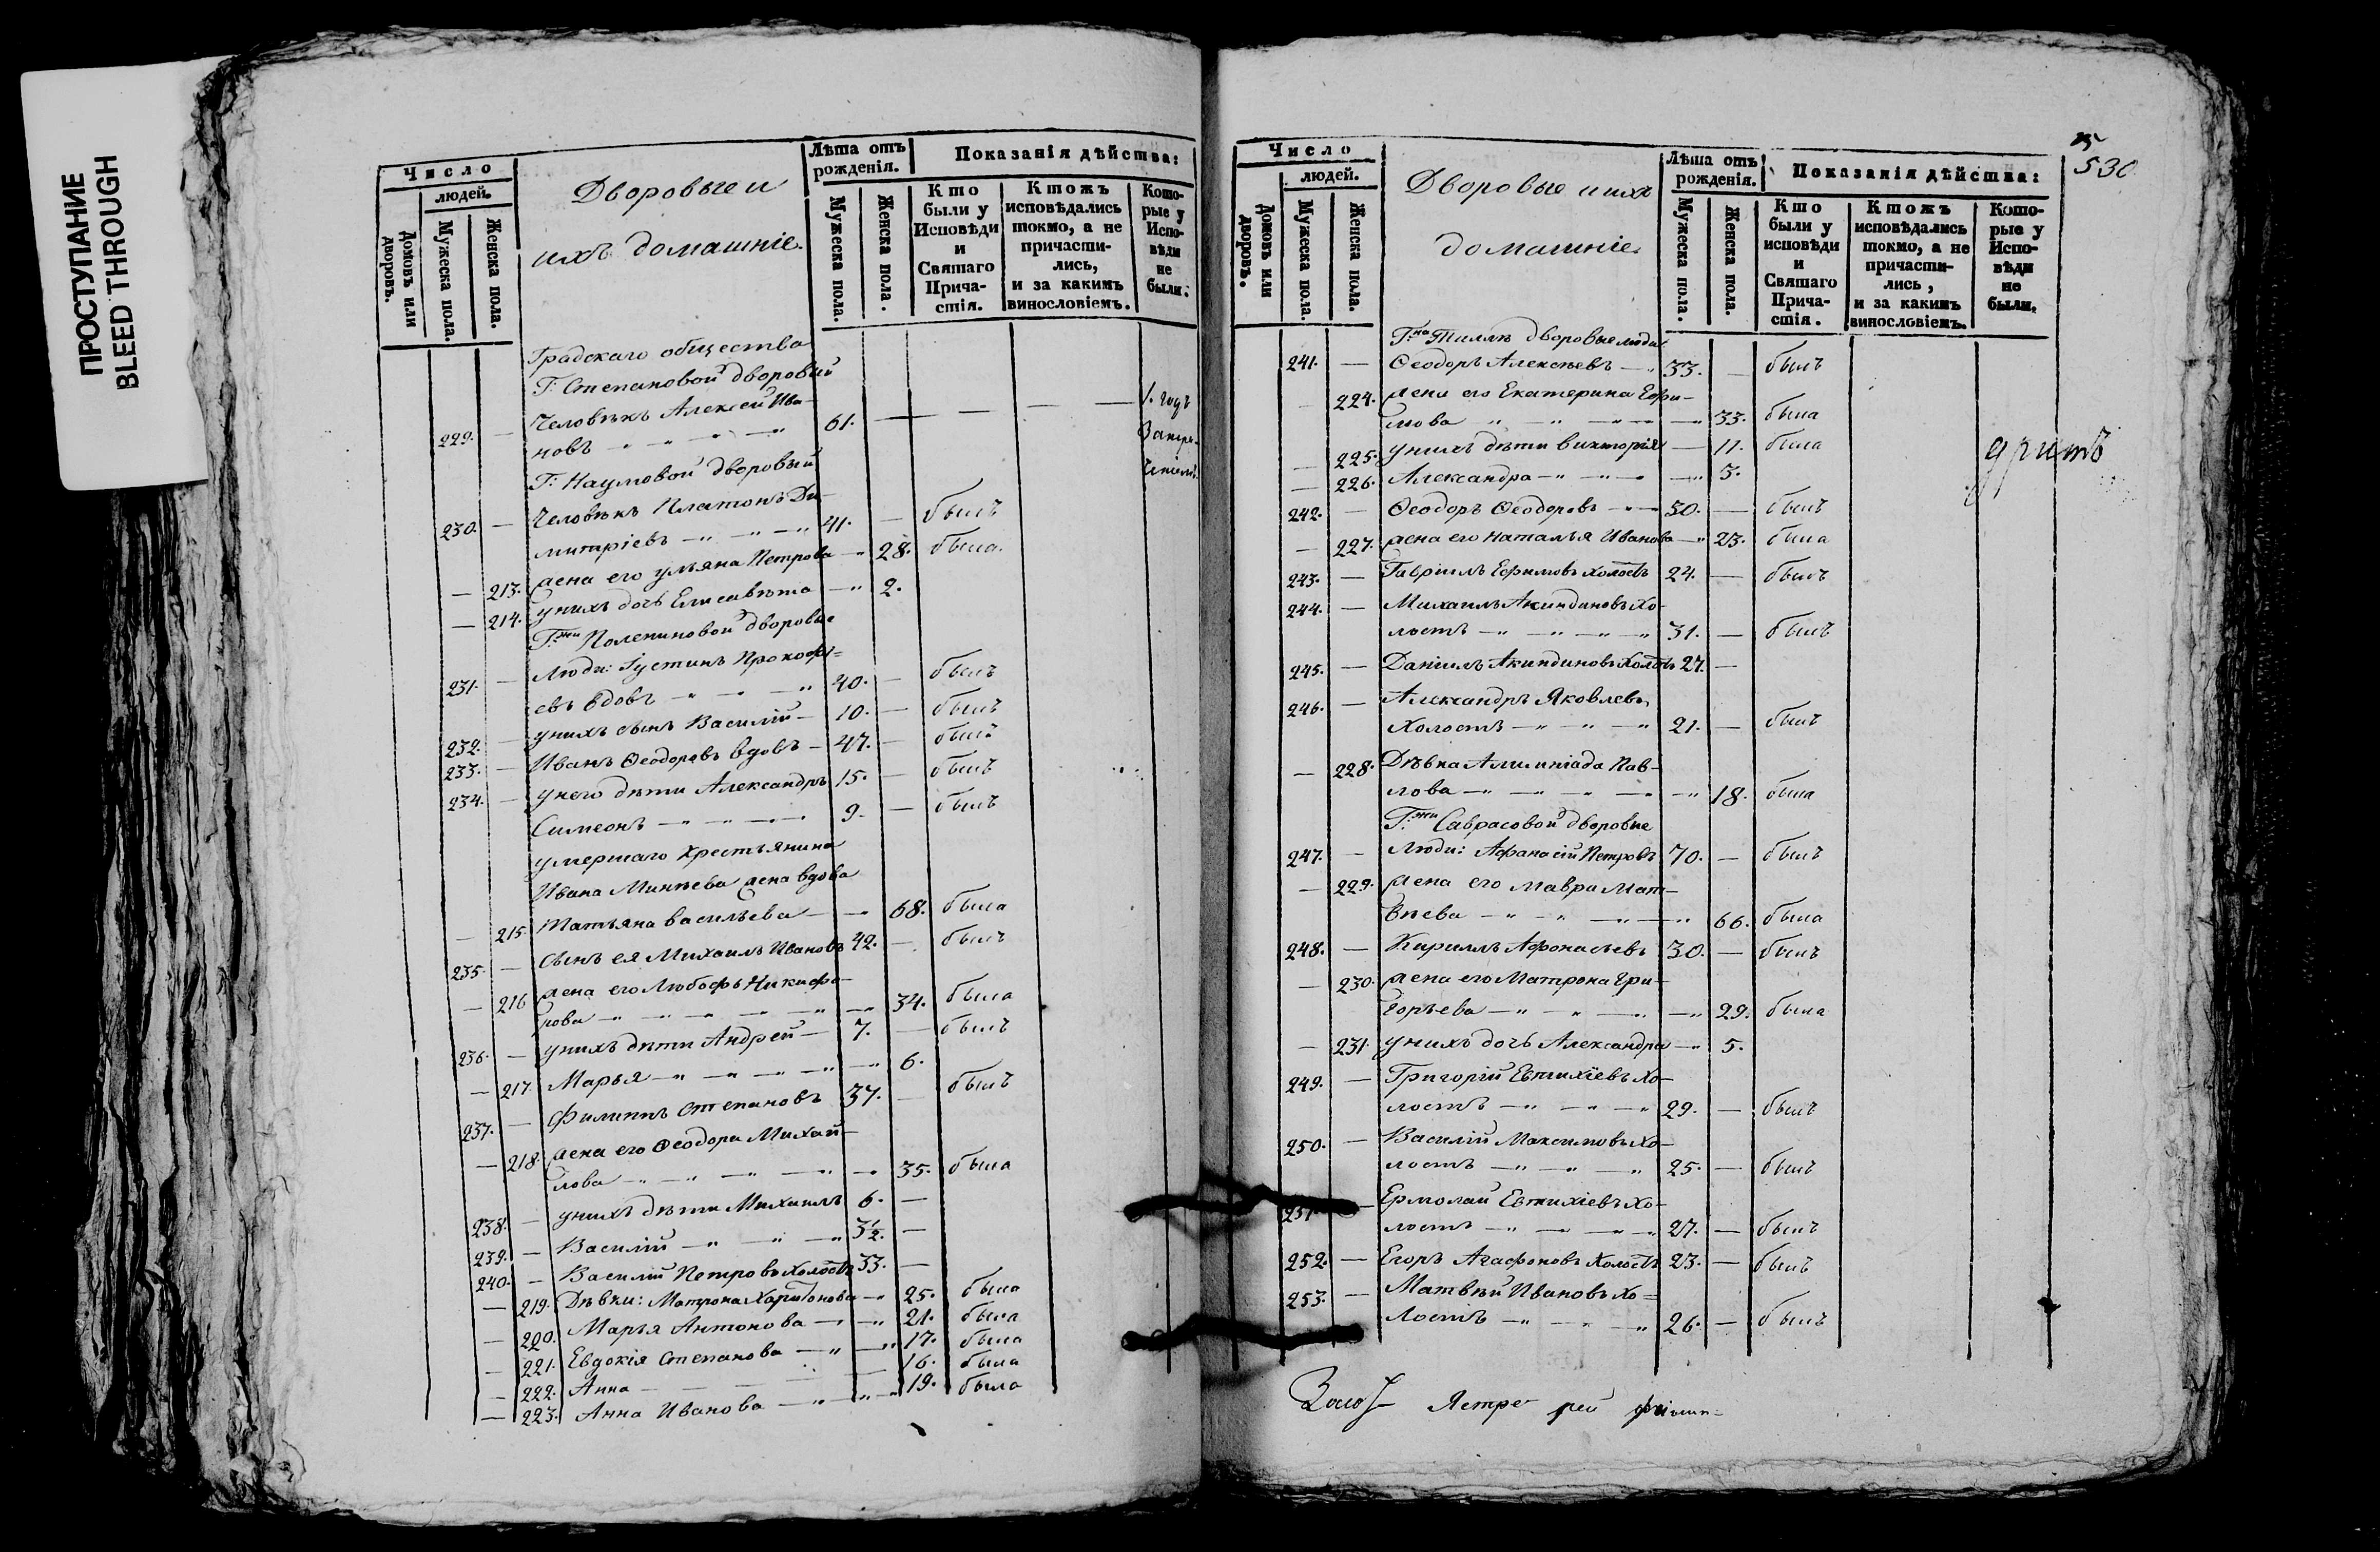 ПРОСТУПАНИЕ
BLEED THROUGH
Число
людей.
Домовъ или дворовъ.
Мужеска пола.
Женска пола.
Дворовые и
ихъ домашніе.
Лѣта отъ рожденія.
Мужеска пола.
Женска пола.
Показанія дѣйства:
Кто были у Исповѣди и Святаго Причастія.
Ктожъ исповѣдались токмо, а не причастились, и за какимъ винословіемъ.
Которые у Исповѣди не были.
Градскаго общества
Г: Степановой дворовый
229. — Человѣкъ Алексей Ива-
новъ 61. — — — 1. годъ
Г: Наумовой дворовый
230. — Человѣкъ Платонъ Ди-
митріевъ 41. — былъ
— 213. жена его Ульяна Петрова — 28. была.
— 214. у нихъ дочь Елисавѣта — 2.
Г:жи Полениновой дворовые
231. — Люди: Іустинъ Прокофь=
евъ вдовъ 40. — былъ
232. — у нихъ сынъ Василій — 10. — былъ
233. — Иванъ Ѳеодоровъ вдовъ — 47. — былъ
234. — у него дѣти Александръ 15. — былъ
Симеонъ 9. — былъ
умершаго Крестьянина
Ивана Минѣева жена вдова
— 215. Татьяна Васильева — 68. была
235. — сынъ ея Михаилъ Ивановъ 42. — былъ
— 216 жена его Любофь Никифо-
рова 34. была
236. — у нихъ дѣти Андрей — 7. — былъ
— 217. Марья — 6.
237. — Филиппъ Степановъ 37. — былъ
— 218. жена его Ѳеодора Михай-
лова 35. была
238. — у нихъ дѣти Михаилъ 6. —
239. — Василій 3½. —
240. — Василій Петровъ холостъ 33. —
— 219. Дѣвки: Матрона Харитонова 25. была
— 220. Марья Антонова 21. была
— 221. Евдокія Степанова 17. была
— 222. Анна 16. была
— 223. Анна Иванова 19. была
530
Число
людей.
Домовъ или дворовъ.
Мужеска пола.
Женска пола.
Дворовые и ихъ
домашніе.
Лѣта отъ рожденія.
Мужеска пола.
Женска пола.
Показанія дѣйства:
Кто были у исповѣди и Святаго Причастія.
Ктожъ исповѣдались токмо, а не причастились, и за какимъ винословіемъ.
Которые у Исповѣди не были.
дворовые люди
241. — Ѳеодоръ Алексѣевъ 33. — былъ
— 224. жена его Екатерина Ефи-
мова 33. была
— 225. у нихъ дѣти Викторія — 11. была
— 226. Александра 3.
242. — Ѳеодоръ Ѳеодоровъ 30. — былъ
— 227. жена его Наталья Иванова 23. была
243. — Гавріилъ Ефимовъ холостъ 24. — былъ
244. — Михаилъ Акиндиновъ хо-
лостъ 31. — былъ
245. — Даніилъ Акиндиновъ холостъ 27. —
246. — Александръ Яковлевъ
холостъ 21. — былъ
— 228. Дѣвка Алимпіада Пав-
лова 18. была
Г:жи Саврасовой дворовые
247. — Люди: Афанасій Петровъ 70. — былъ
— 229. жена его Мавра Мат-
вѣева 66. была
248. — Кириллъ Афонасьевъ 30. — былъ
— 230. жена его Матрона Гри-
горьева 29. была
— 231. у нихъ дочь Александра 5.
249. — Григорій Евтихіевъ хо-
лостъ 29. — былъ
250. — Василій Максимовъ хо-
лостъ 25. — былъ
251. — Ермолай Евтихіевъ хо-
лостъ 27. — былъ
252. — Егоръ Агафоновъ холостъ 23. — былъ
253. — Матвѣй Ивановъ хо=
лостъ 26. — былъ